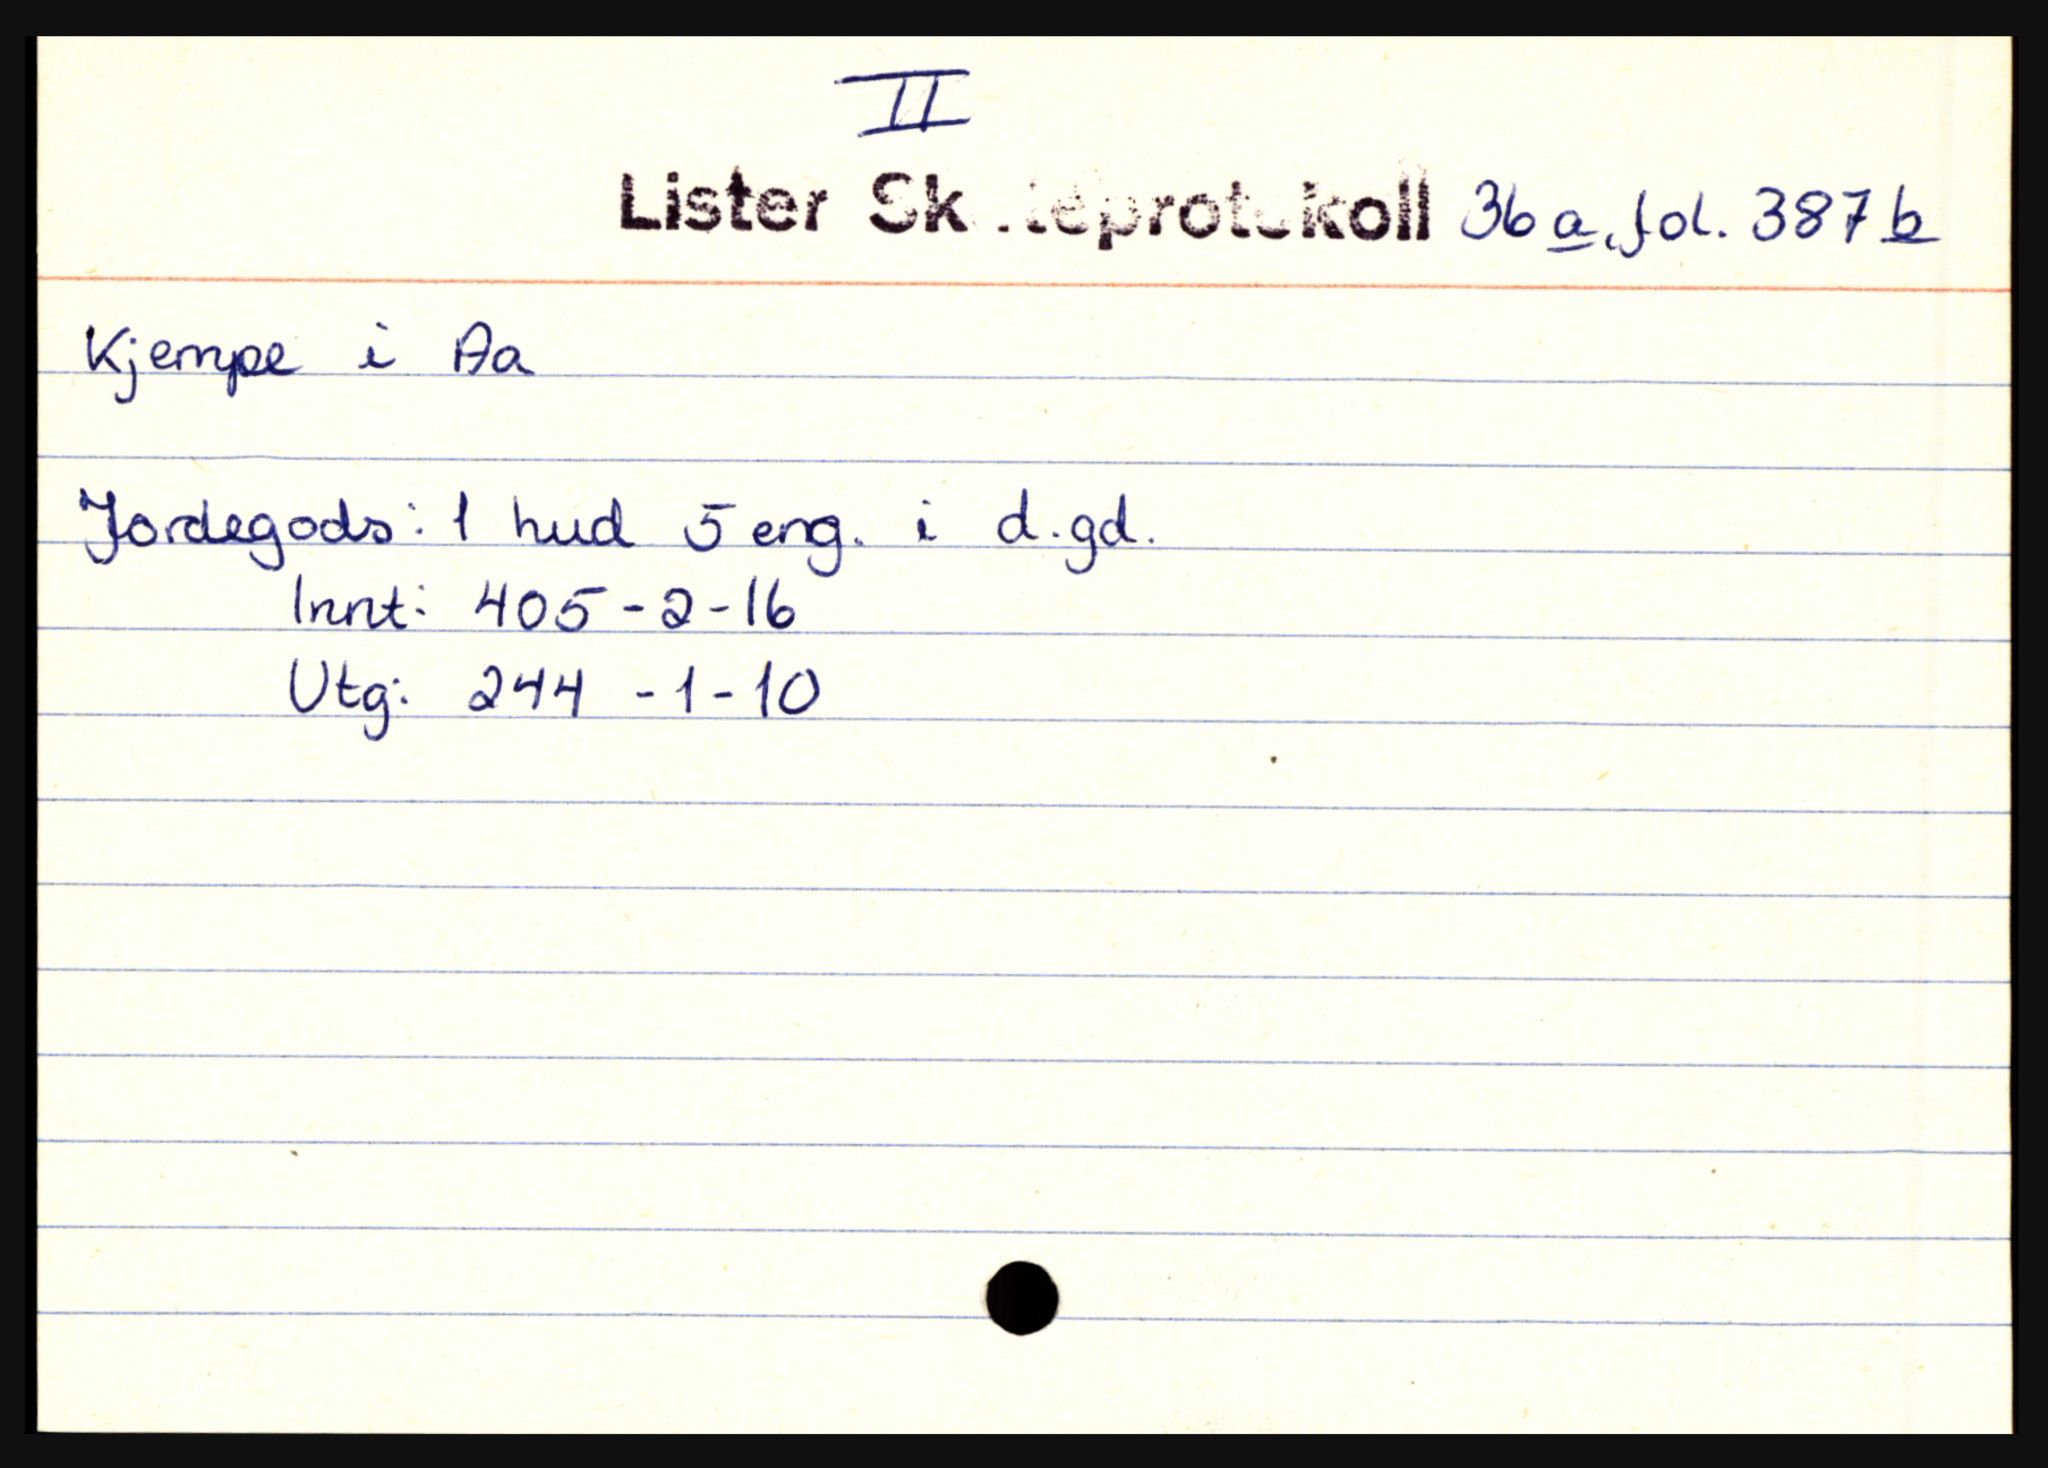 II
Lister Skifteprotokoll 36a, fol. 387b
Kjempe i Aa
Jordegods: 1 hud 5 eng. i d.gd.
Innt: 405-2-16
Utg: 244-1-10